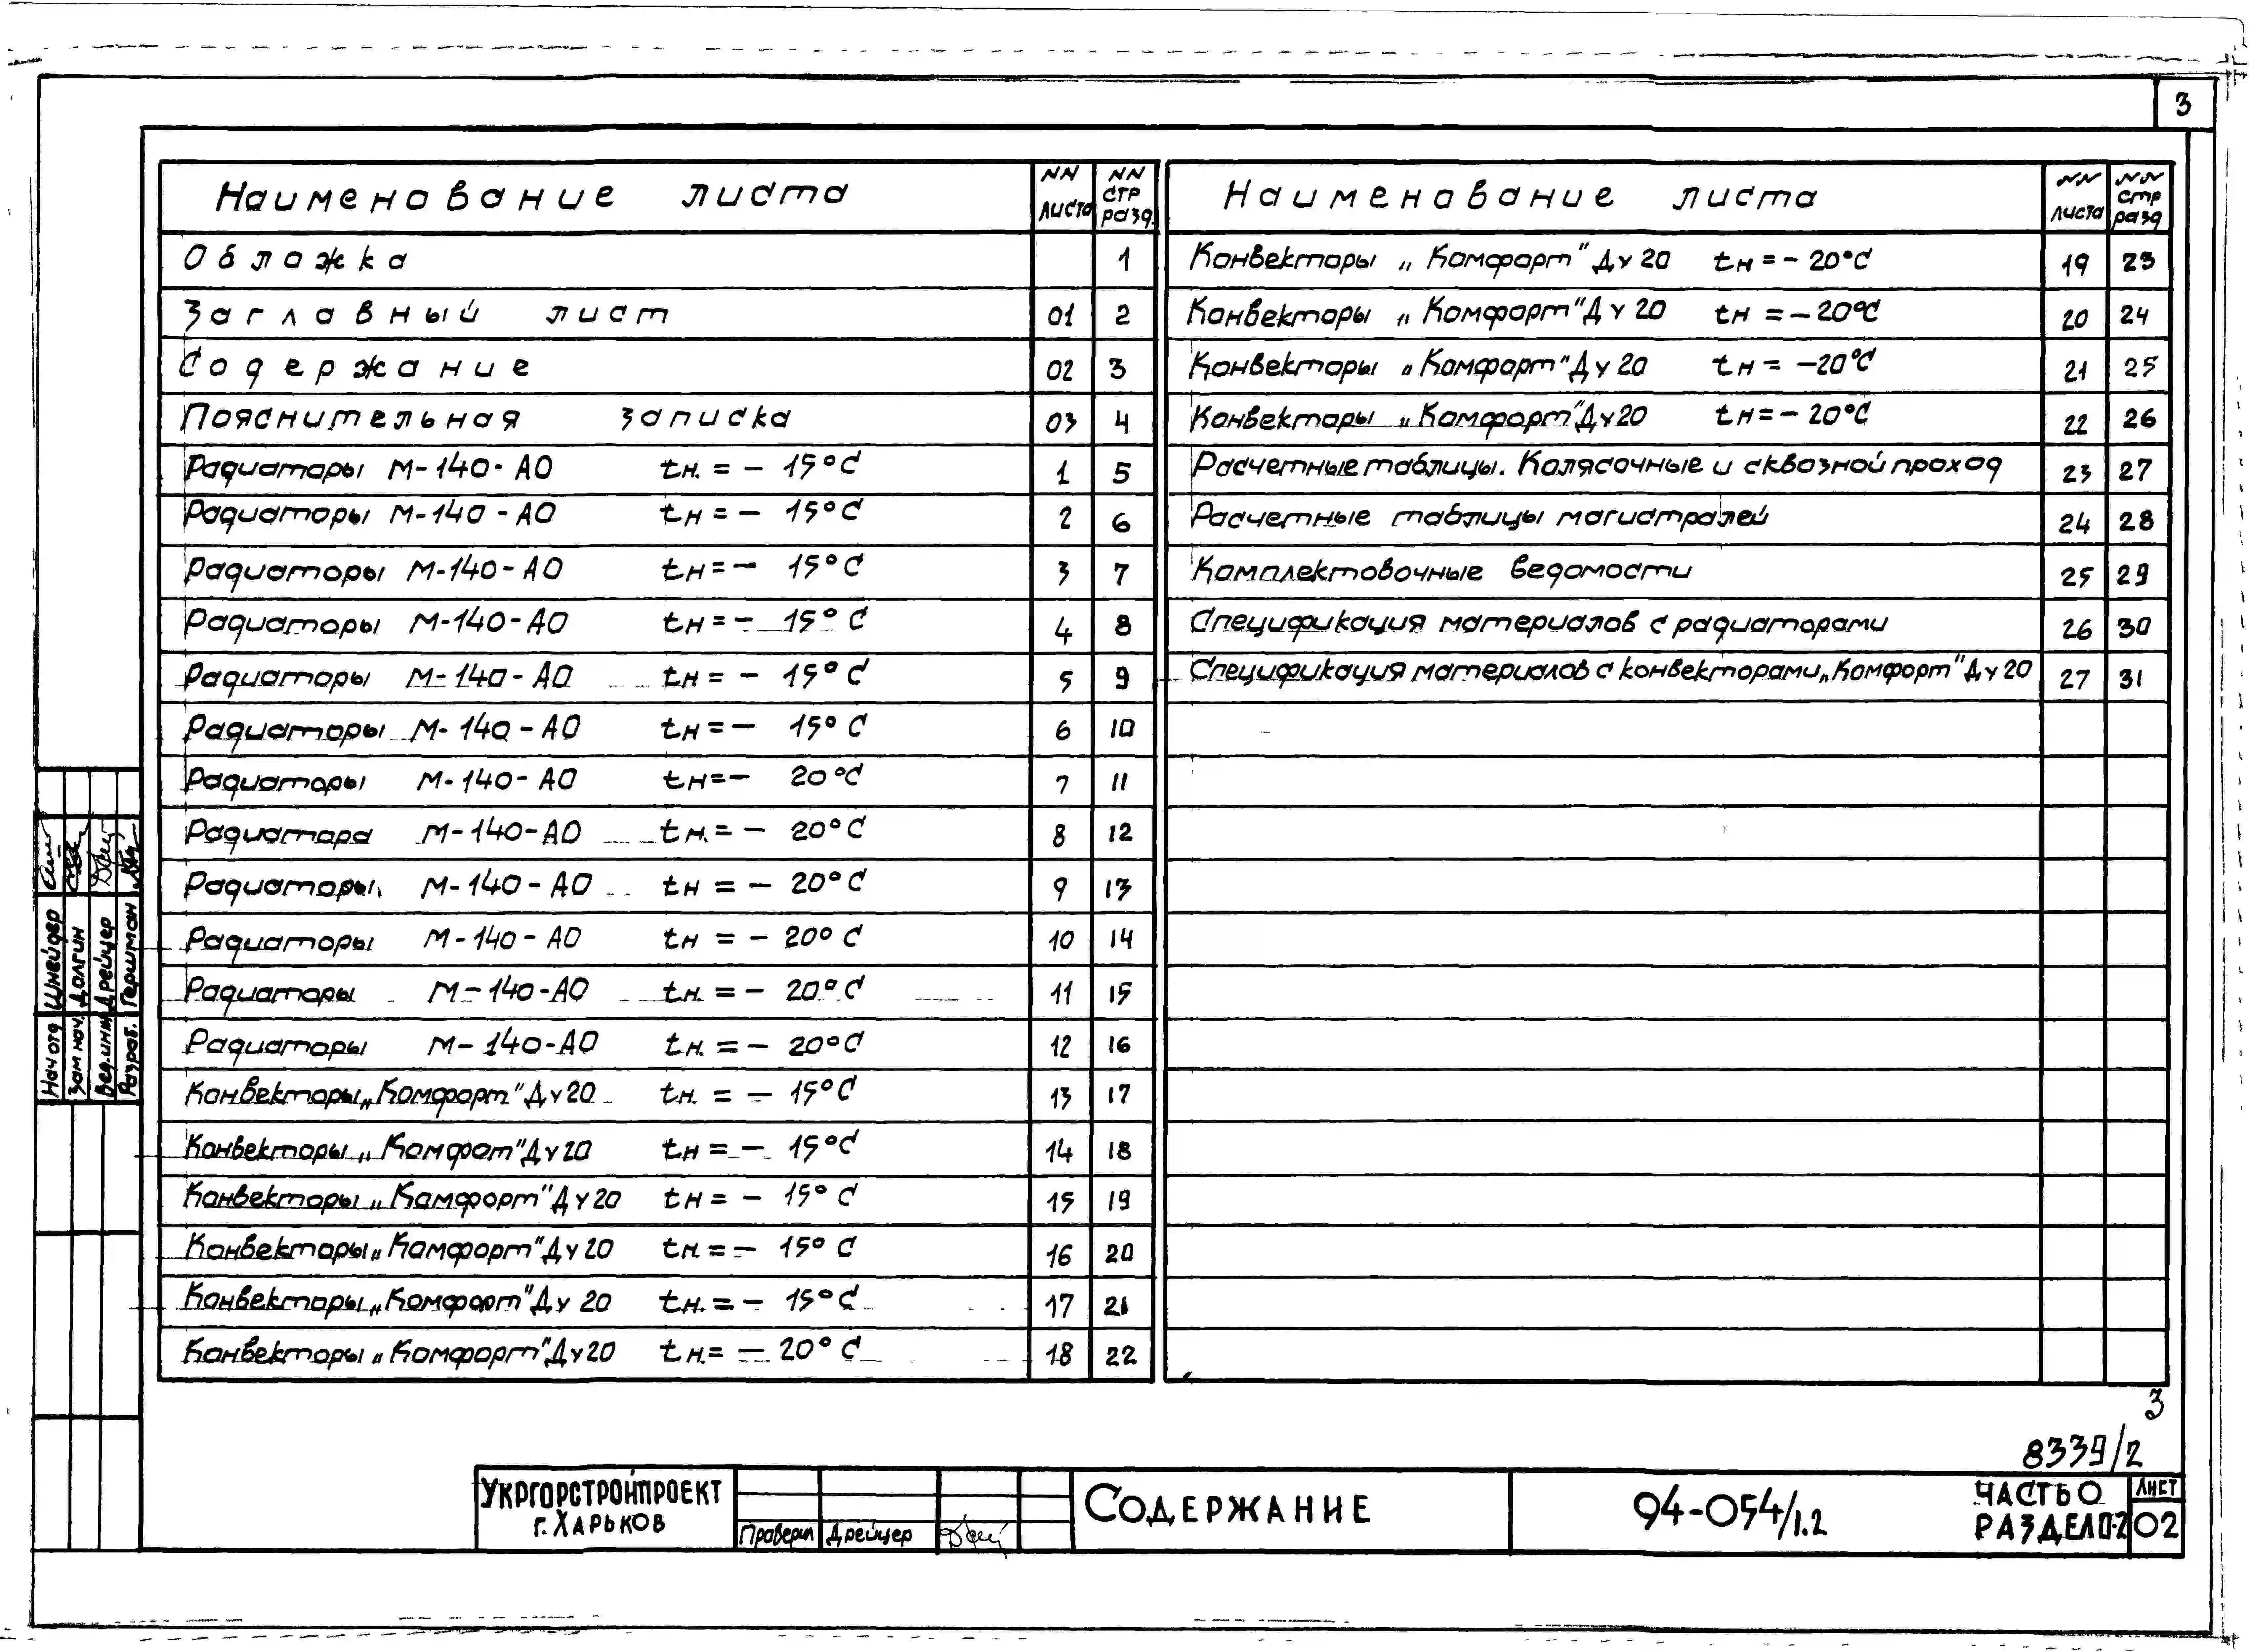 3
Наименование листа NN листа NN стр разд.
Обложка 1
Заглавный лист 01 2
Содержание 02 3
Пояснительная записка 03 4
Радиаторы М-140-АО tн. = - 15°С 1 5
Радиаторы М-140-АО tн = - 15°С 2 6
Радиаторы М-140-АО tн = - 15°С 3 7
Радиаторы М-140-АО tн = - 15°С 4 8
Радиаторы М-140-АО tн = - 15°С 5 9
Радиаторы М-140-АО tн = - 15°С 6 10
Радиаторы М-140-АО tн = - 20°С 7 11
Радиатора М-140-АО tн. = - 20°С 8 12
Радиаторы М-140-АО tн = - 20°С 9 13
Радиаторы М-140-АО tн = - 20°С 10 14
Радиаторы М-140-АО tн. = - 20°С 11 15
Радиаторы М-140-АО tн. = - 20°С 12 16
Конвекторы „Комфорт" Ду 20 tн. = - 15°С 13 17
Конвекторы „Комфот" Ду 20 tн = - 15°С 14 18
Конвекторы „Комфорт" Ду 20 tн = - 15°С 15 19
Конвекторы „Комфорт" Ду 20 tн. = - 15°С 16 20
Конвекторы „Комфорт" Ду 20 tн. = - 15°С 17 21
Конвекторы „Комфорт" Ду 20 tн. = - 20°С 18 22
Наименование листа NN листа NN стр разд
Конвекторы „Комфорт" Ду 20 tн = - 20°С 19 23
Конвекторы „Комфорт" Ду 20 tн = - 20°С 20 24
Конвекторы „Комфорт" Ду 20 tн = - 20°С 21 25
Конвекторы „Комфорт" Ду 20 tн = - 20°С 22 26
Расчетные таблицы. Колясочные и сквозной проход 23 27
Расчетные таблицы магистралей 24 28
Комплектовочные ведомости 25 29
Спецификация материалов с радиаторами 26 30
Спецификация материалов с конвекторами „Комфорт" Ду 20 27 31
Нач отд Шнейдер
Зам нач. Долгин
Вед.инж Дрейцер
Разраб. Гершман
3
8339/2
УКРГОРСТРОЙПРОЕКТ
г. ХАРЬКОВ
Проверил Дрейцер
СОДЕРЖАНИЕ
94-054/1.2
ЧАСТЬ 0
РАЗДЕЛ 0-2
ЛИСТ
02